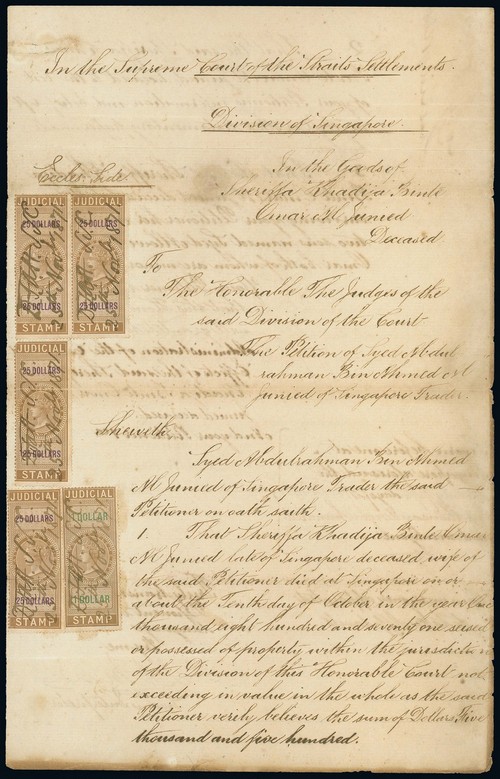 In the Supreme Court of the Straits Settlements.
Division of Singapore.
Eccles: Side
In the Goods of
Sheriffa Khadija Binte
Omar Al Junied
Deceased
To
The Honorable The Judges of the
said Division of the Court
The Petition of Syed Abdul
rahman Bin Ahmed Al
Junied of Singapore Trader.
Sheweth
Syed Abdulrahman Bin Ahmed
Al Junied of Singapore Trader the said
Petitioner on oath saith.
1. That Sheriffa Khadija Binte Omar
Al Junied late of Singapore deceased wife of
the said Petitioner died at Singapore on or
about the Tenth day of October in the year One
thousand eight hundred and seventy one seised
or possessed of property within the jurisdiction
of the Division of this Honorable Court not
exceeding in value in the whole as the said
Petitioner verily believes the sum of Dollars Five
thousand and five hundred.
JUDICIAL
25 DOLLARS
25 DOLLARS
STAMP
JUDICIAL
25 DOLLARS
25 DOLLARS
STAMP
JUDICIAL
25 DOLLARS
25 DOLLARS
STAMP
JUDICIAL
25 DOLLARS
25 DOLLARS
STAMP
JUDICIAL
1 DOLLAR
1 DOLLAR
STAMP